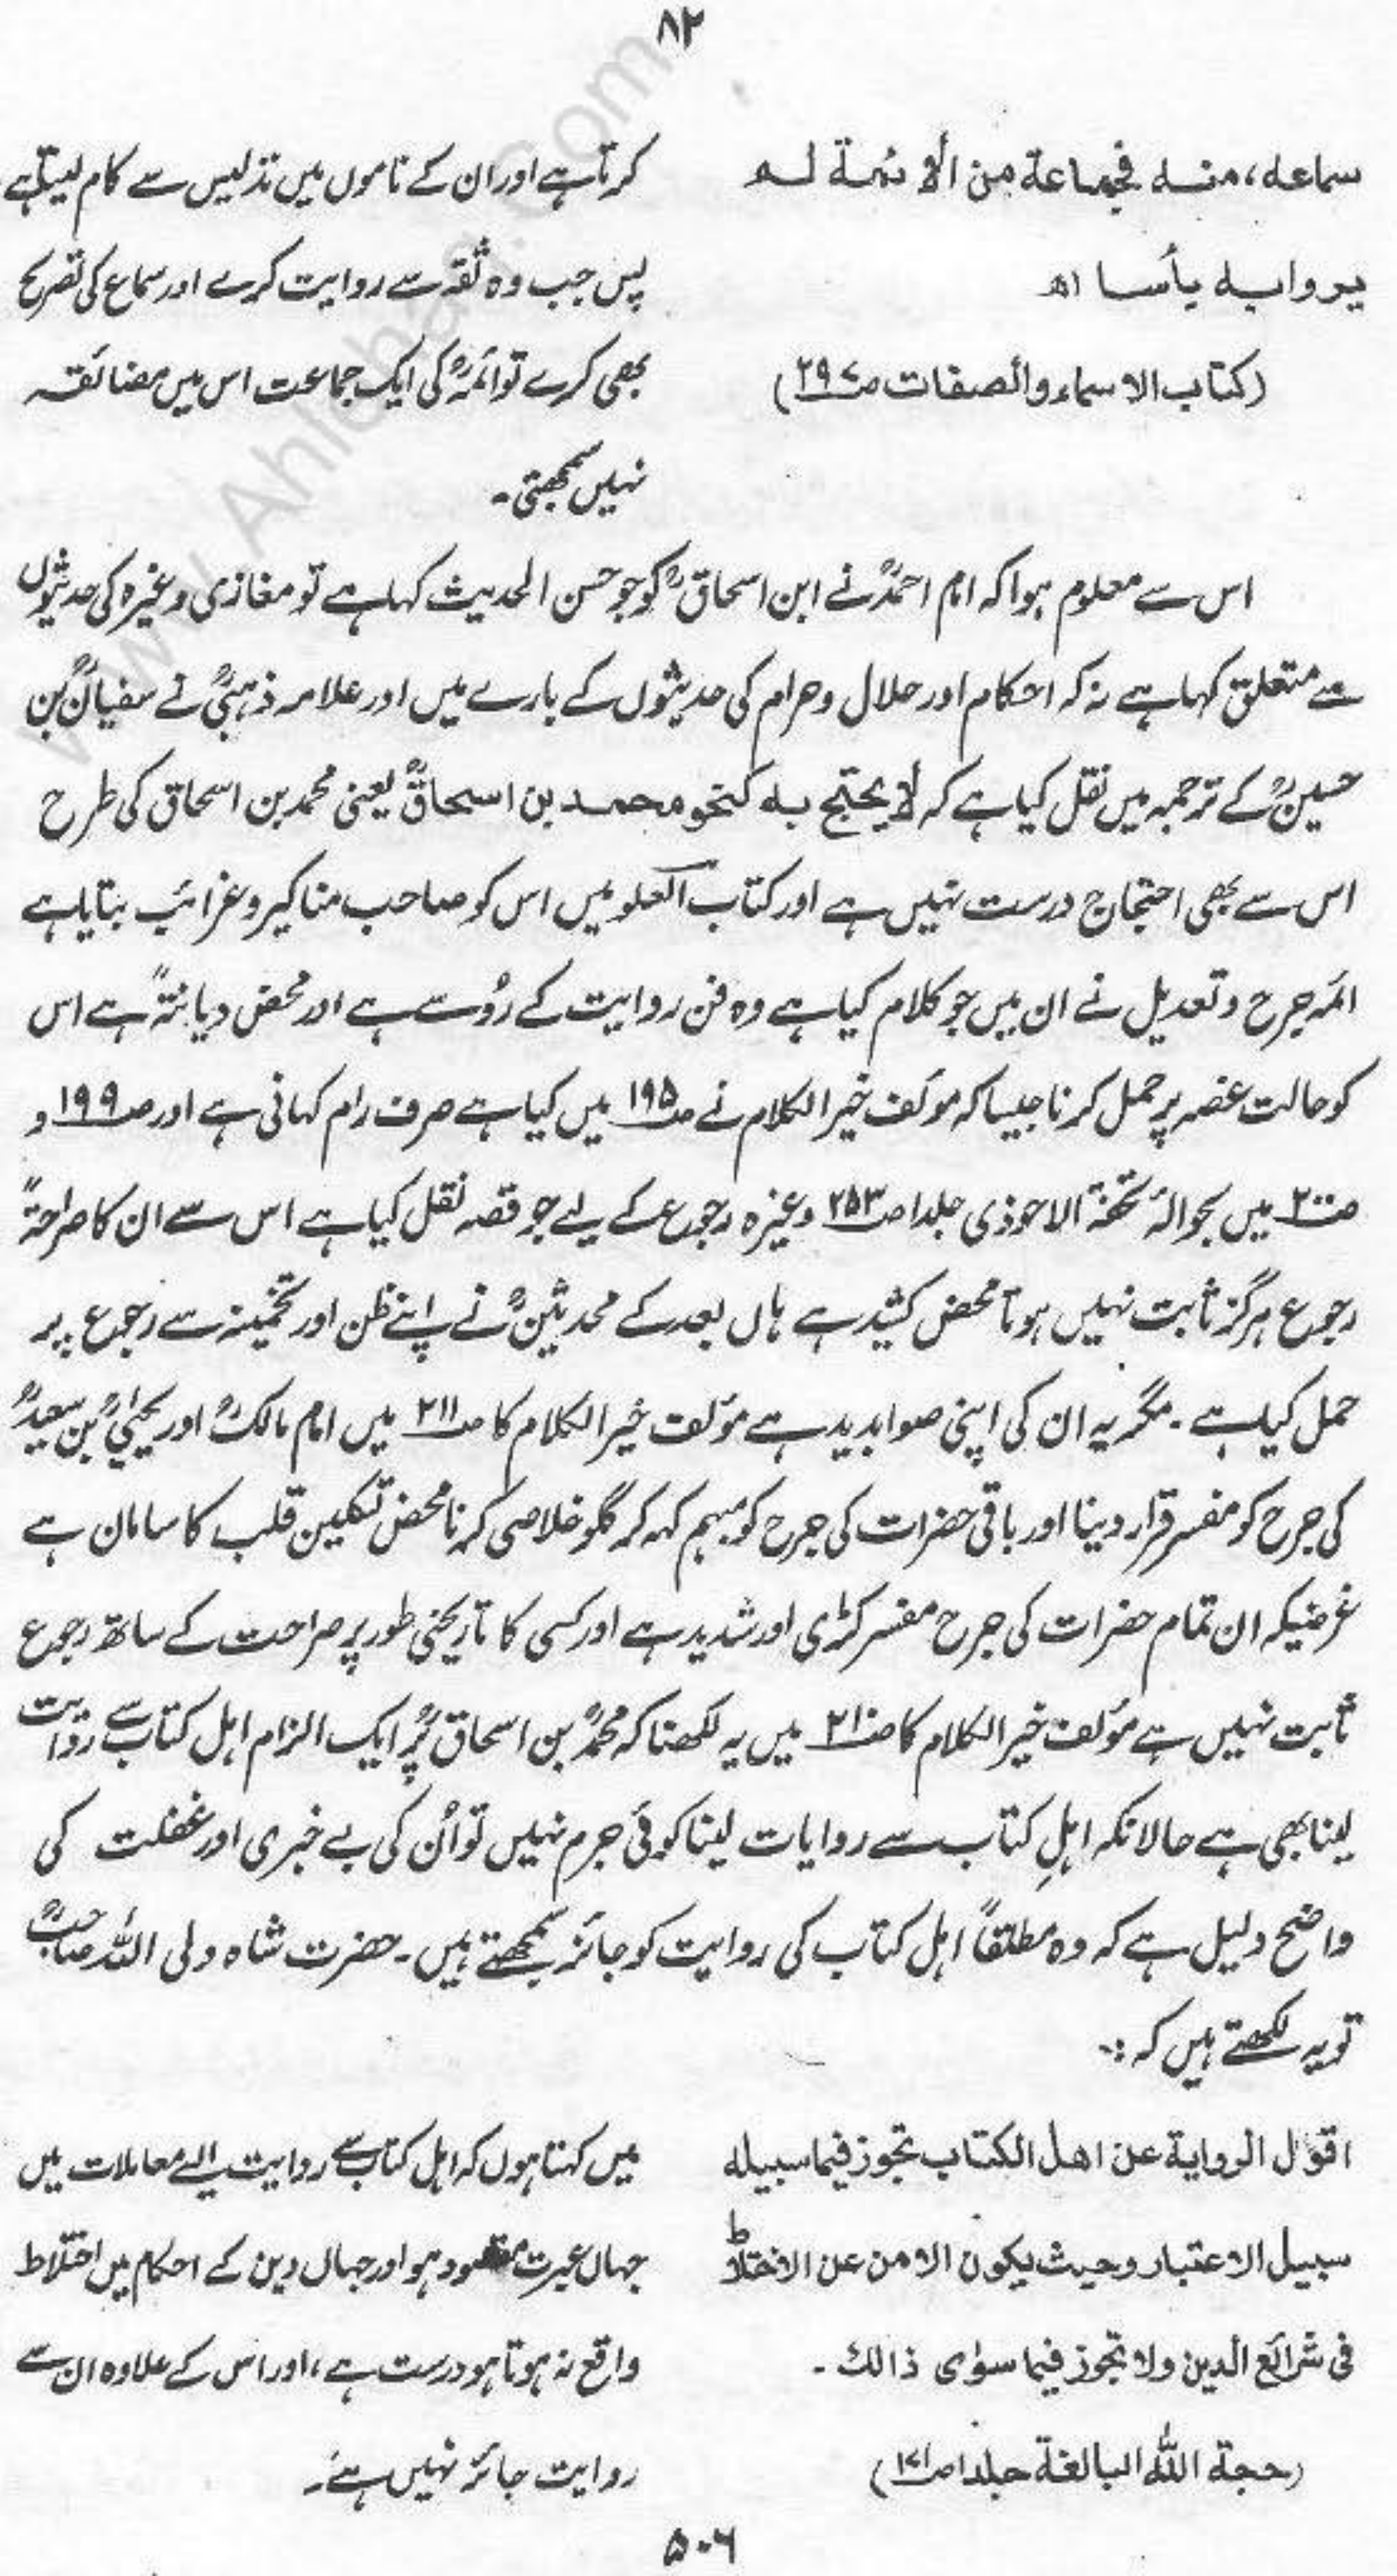 ۸۲
سماعه، منه فجماعة من الأئمة لم
یروا به بأسا اھ
(کتاب الاسماء والصفات ص۲۹۷)
کرتا ہے اور ان کے ناموں میں تدلیس سے کام لیتا ہے
پس جب وہ ثقہ سے روایت کرے اور سماع کی تصریح
بھی کرے تو ائمہؒ کی ایک جماعت اس میں مضائقہ
نہیں سمجھتی۔
اس سے معلوم ہوا کہ امام احمدؒ نے ابن اسحاقؒ کو جو حسن الحدیث کہا ہے تو مغازی وغیرہ کی حدیثوں
سے متعلق کہا ہے نہ کہ احکام اور حلال و حرام کی حدیثوں کے بارے میں اور علامہ ذہبیؒ نے سفیانؒ بن
حسینؒ کے ترجمہ میں نقل کیا ہے کہ لا یحتج به کنحو محمد بن اسحاقؒ یعنی محمد بن اسحاق کی طرح
اس سے بھی احتجاج درست نہیں ہے اور کتاب العلو میں اس کو صاحب مناکیر و غرائب بتایا ہے
ائمہ جرح و تعدیل نے ان میں جو کلام کیا ہے وہ فن روایت کے رُو سے ہے اور محض دیانتہً ہے اس
کو حالت غصہ پر حمل کرنا جیسا کہ مؤلف خیر الکلام نے ص۱۹۵ میں کیا ہے صرف رام کہانی ہے اور ص۱۹۹ و
ص۲۰۰ میں بحوالۂ تحفۃ الاحوذی جلد ا ص۲۵۳ وغیرہ رجوع کے لیے جو قصہ نقل کیا ہے اس سے ان کا صراحۃً
رجوع ہرگز ثابت نہیں ہوتا محض کشید ہے ہاں بعد کے محدثینؒ نے اپنے ظن اور تخمینہ سے رجوع پر
حمل کیا ہے۔ مگر یہ ان کی اپنی صوابدید ہے مؤلف خیر الکلام کا ص۲۱۱ میں امام مالکؒ اور یحییٰؒ بن سعیدؒ
کی جرح کو مفسر قرار دینا اور باقی حضرات کی جرح کو مبہم کہہ کر گلو خلاصی کرنا محض تسکین قلب کا سامان ہے
غرضیکہ ان تمام حضرات کی جرح مفسر کڑی اور شدید ہے اور کسی کا تاریخی طور پر صراحت کے ساتھ رجوع
ثابت نہیں ہے مؤلف خیر الکلام کا ص۲۱۰ میں یہ لکھنا کہ محمدؒ بن اسحاق پر ایک الزام اہل کتاب سے روایت
لینا بھی ہے حالانکہ اہلِ کتاب سے روایات لینا کوئی جرم نہیں تو اُن کی بے خبری اور غفلت کی
واضح دلیل ہے کہ وہ مطلقاً اہل کتاب کی روایت کو جائز سمجھتے ہیں۔ حضرت شاہ ولی اللہ صاحبؒ
تو یہ لکھتے ہیں کہ :۔
اقول الرواية عن اهل الکتاب تجوز فیما سبیله
سبیل الاعتبار وحیث یکون الامن عن الاختلاط
فی شرائع الدین ولا تجوز فیما سوٰی ذالک۔
(حجة الله البالغة جلد ا ص۱۷۱)
میں کہتا ہوں کہ اہل کتاب سے روایت ایسے معاملات میں
جہاں عبرت مقصود ہو اور جہاں دین کے احکام میں اختلاط
واقع نہ ہوتا ہو درست ہے، اور اس کے علاوہ ان سے
روایت جائز نہیں ہے۔
۵۰۶
www.Ahlehaq.Com